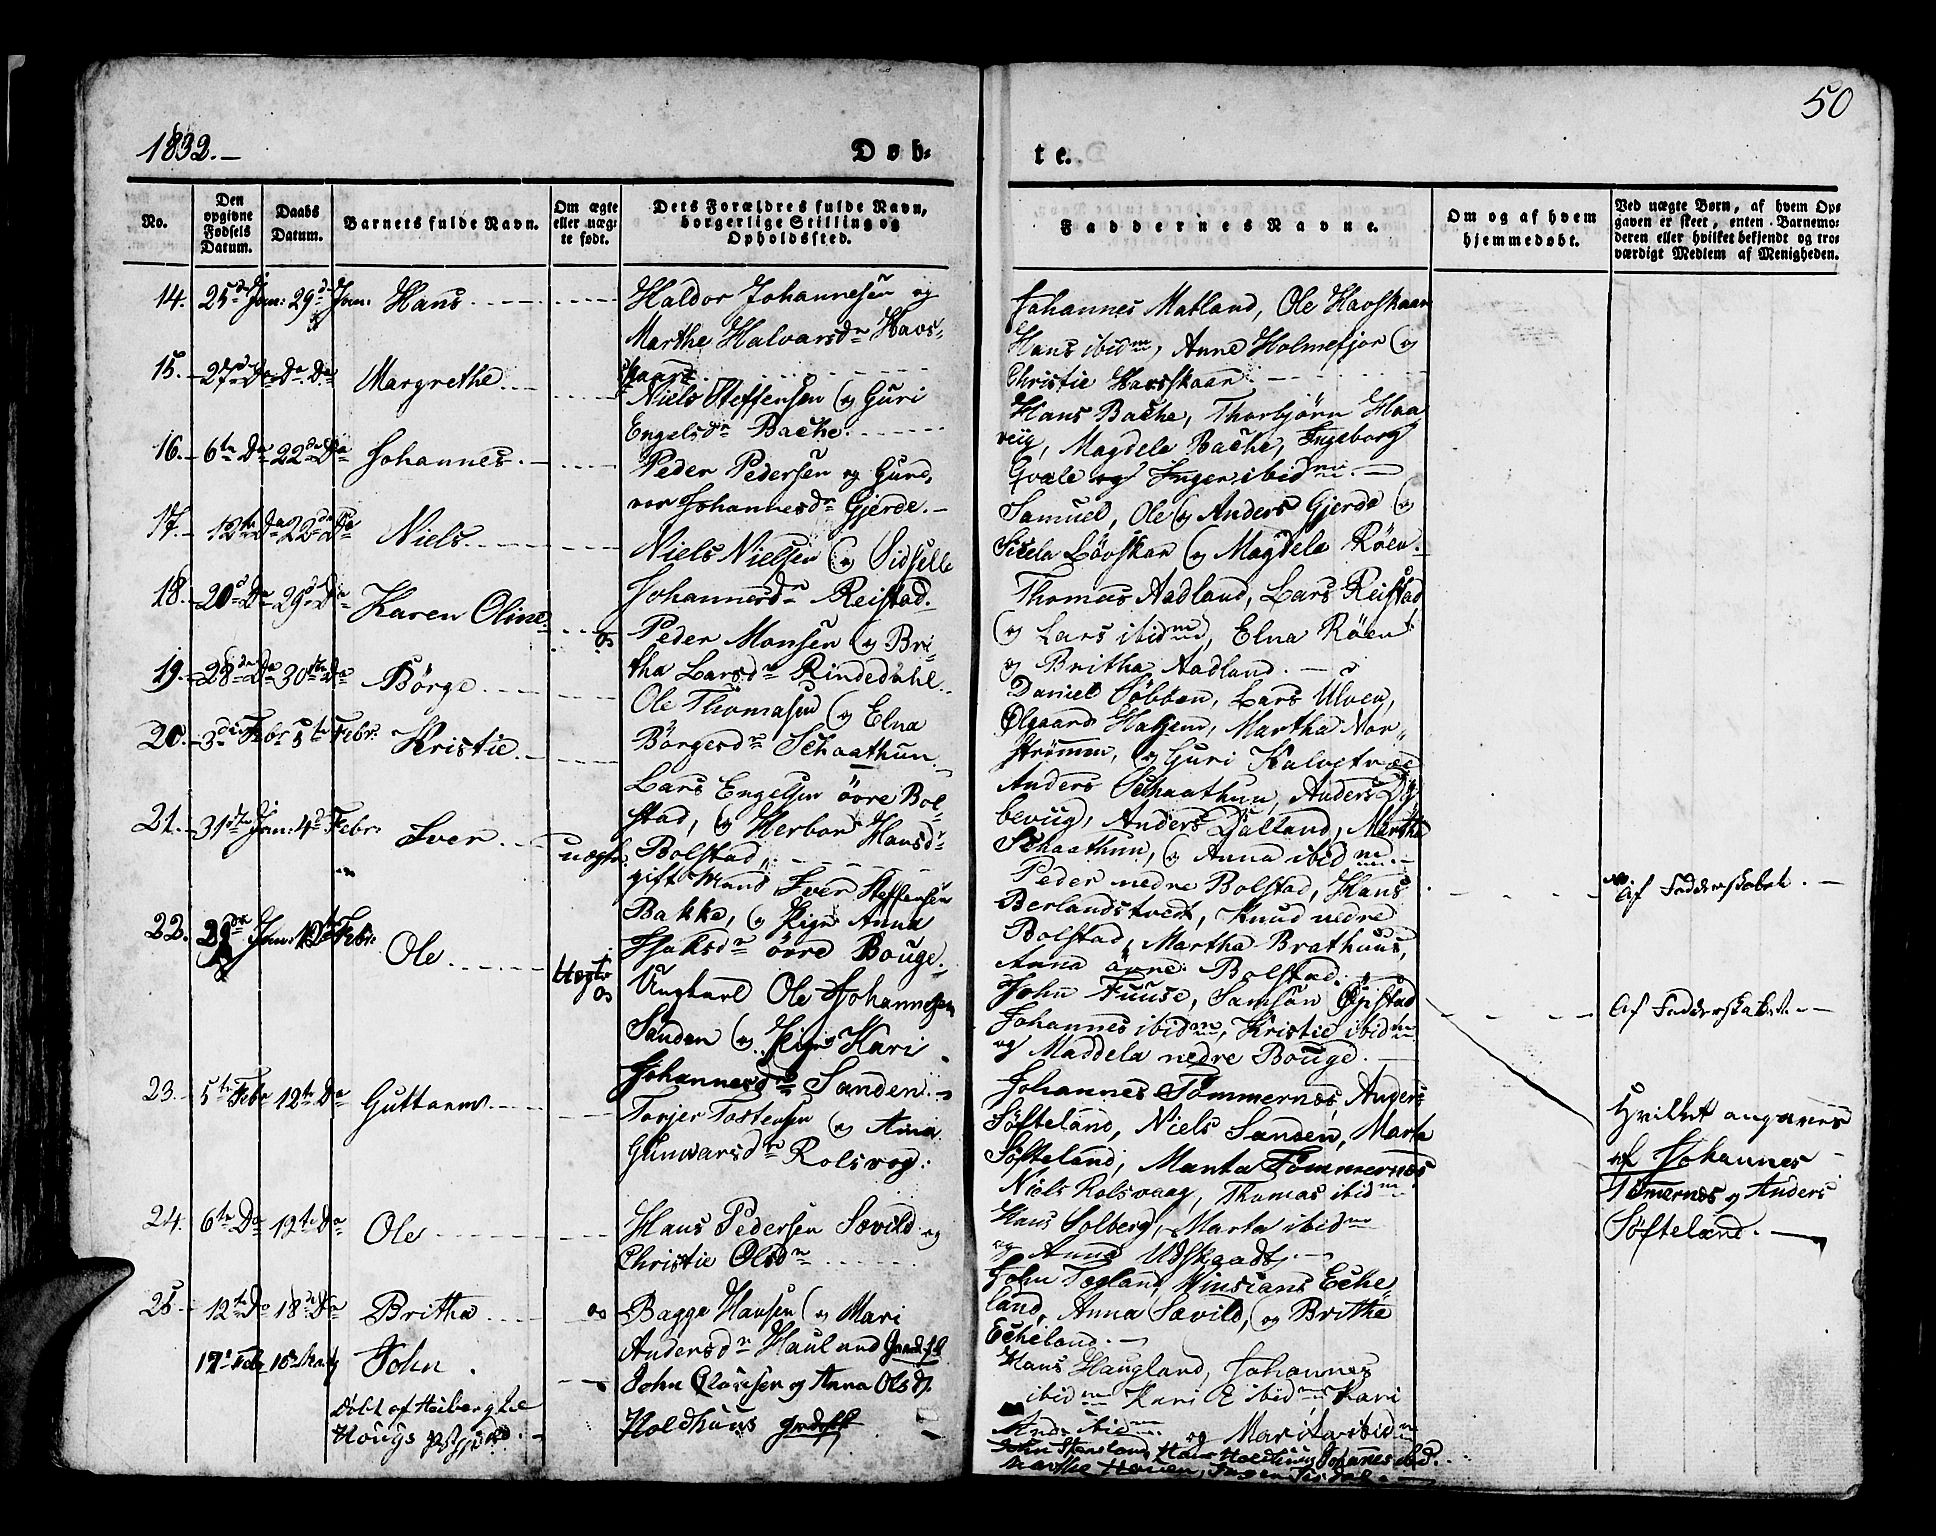 1832.
Døb-
te.
50
No.
Den opgivne Fødsels Datum.
Daabs Datum.
Barnets fulde Navn.
Om ægte eller uægte født.
Dets Forældres fulde Navn, borgerlige Stilling og Opholdssted.
Faddernes Navne.
Om og af hvem hjemmedøbt.
Ved uægte Børn, af hvem Opgaven er skeet, enten Barnemoderen eller hvilket bekjendt og troværdigt Medlem af Menigheden.
14. 25de Jan: 29de Jan. Hans
Haldor Johannesen og
Marthe Halvarsdr Havs-
kaar
Johannes Matland, Ole Havskaar
Hans ibidm, Anne Holmefjor og
Christie Havskaar.
15. 27de Do Do Do Margrethe
Niels Steffensen og Guri
Engelsdr Bache.
Hans Bache, Thorbjörn Haa
viig, Magdela Bache, Ingeborg
Qvale og Inger ibidm.
16. 6te Do 22de Do Johannes
Peder Pedersen og Gund,
vor Johannesdr Gjerde.
Samuel, Ole og Anders Gjerde og
Sicela Lövskar og Magdela Röen.
17. 12te Do 22de Do Niels
Niels Nielsen og Sidselle
Johannesdr Reistad.
Thomas Aadland, Lars Reistad
og Lars ibidm, Elna Röen
og Britha Aadland.
18. 20de Do 29de Do Karen Oline
Peder Monsen og Bri-
tha Larsdr Rindedahl.
Daniel Söbten, Lars Ulven,
Ølgaard Hatjem, Martha Nor-
strömen, og Guri Kalvetræe
19. 28de Do 30te Do Börge
Ole Thomasen og Elna
Börgesdr Schaathun.
Anders Schaathun, Anders Dy
beviig, Anders Djatland, Martha
Schaathun, og Anna ibidm.
20. 3die Febr 5te Febr: Kristie
Lars Engelsen övre Bol-
stad, og Herbor Hansdr
Bolstad,
Peder nedre Bolstad, Hans
Berlandstvedt, Knud nedre
Bolstad, Martha Brathuus,
Anna övre Bolstad.
21. 31te Jan: 4de Febr: Iver uægte
gift Mand Iver Steffensen
Bakke, og Pige Anna
Isaksdr övre Bouge.
John Tuuse, Samson Øvistad
Johannes ibidm, Kristie ibidm
og Maddela nedre Bouge.
Af Fadderskabet.
22. 29de Jan: 12te Febr: Ole Uægte
Ungkarl Ole Johannesen
Sanden og Pige Kari
Johannesdr Sanden.
Johannes Tömmernæs, Anders
Söfteland, Niels Sanden, Marta
Söfteland, Manta Tömmernæs
Af Fadderskabet.
Hvilket angaves
af Johannes
Tömmernæs og Anders
Söfteland.
23. 5te Febr 12te Do Guttorm
Torjer Tostensen og Anna
Gunnarsdr Rolsvog.
Niels Rolsvaag, Thomas ibidm
Hans Solberg, Marta ibidm
og Anna Udskaadt.
24. 6te Do 12te Do Ole
Hans Pedersen Sævild og
Christie Olsdr
John Tøgland, Vinsians Eche-
land, Anna Sævild, og Britha
Echeland.
25. 12te Do 18de Do Britha
Bagge Hansen og Mari
Andersdr Hauland
Hans Haugland, Johannes
ibidm Kari E ibidm, Kari
Ands ibidm og Marita ibidm
17de Feb John
Døbt af Heiberg
John Clausen og Anna Olsd.
Holdhuus
John Skeisland, Hans Holdhuus Johannes ibd.